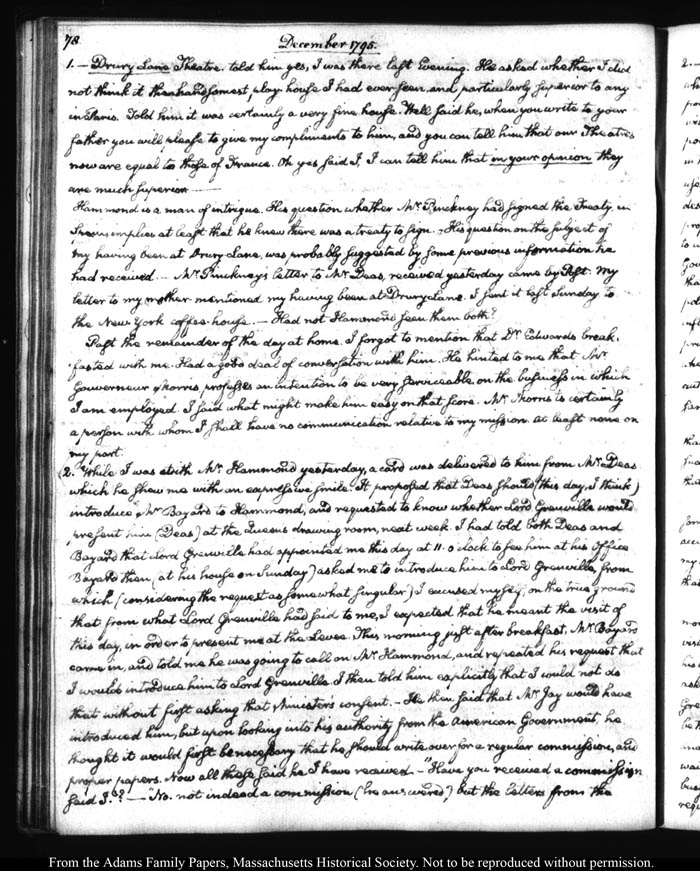 78.
December 1795.
1. — Drury Lane Theatre. told him yes, I was there last Evening. He asked whether I did
not think it the handsomest play-house I had ever seen and particularly superior to any
in Paris. Told him it was certainly a very fine house. Well said he, when you write to your
father you will please to give my compliments to him, and you can tell him that our Theatres
now are equal to those of France. Oh yes said I, I can tell him that in your opinion they
are much superior —
Hammond is a man of intrigue. His question whether Mr. Pinckney had signed the Treaty, in
Spain implies at least that he knew there was a treaty to sign. — His question on the subject of
my having been at Drury Lane, was probably suggested by some previous information he
had received. — Mr. Pinckney's letter to Mr. Deas, received yesterday came by Post. My
letter to my mother mentioned my having been at Drury Lane. I sent it last Sunday to
the New York coffee-house. — Had not Hammond seen them both?
Past the remainder of the day at home. I forgot to mention that Dr. Edwards break-
fasted with me. Had a good deal of conversation with him. He hinted to me that Mr.
Gouverneur Morris professes an intention to be very serviceable on the business in which
I am employed. I said what might make him easy on that score. Mr. Morris is certainly
a person with whom I shall have no communication relative to my mission. at least none on
my part.
2. While I was with Mr. Hammond yesterday, a card was delivered to him from Mr. Deas
which he shew me with an expressive smile. It proposed that Deas should (this day, I think)
introduce Mr Bayard to Hammond, and requested to know whether Lord Grenville would
present him (Deas) at the Queens drawing room, next week. I had told both Deas and
Bayard that Lord Grenville had appointed me this day at 11. o'clock to see him at his Office
Bayard then (at his house on Sunday) asked me to introduce him to Lord Grenville, from
which (considering the request as somewhat singular) I excused myself, on the true ground
that from what Lord Grenville had said to me, I expected that he meant the visit of
this day, in order to present me at the Levee. This morning just after breakfast, Mr. Bayard
came in, and told me he was going to call on Mr. Hammond, and repeated his request that
I would introduce him to Lord Grenville. I then told him explicitly that I could not do
that without first asking that Minister's consent. — He then said that Mr. Jay would have
introduced him, but upon looking into his authority from the American Government, he
thought it would first be necessary that he should write over for a regular commission, and
proper papers. Now all those said he I have received — "Have you received a commission
said I."? — "No. not indeed a commission (he answered) but the letters from the
From the Adams Family Papers, Massachusetts Historical Society. Not to be reproduced without permission.